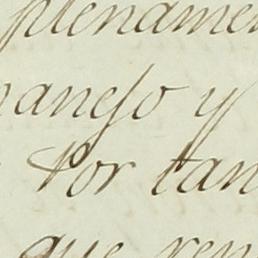 plenamen
anejo y
Por tan
que ren